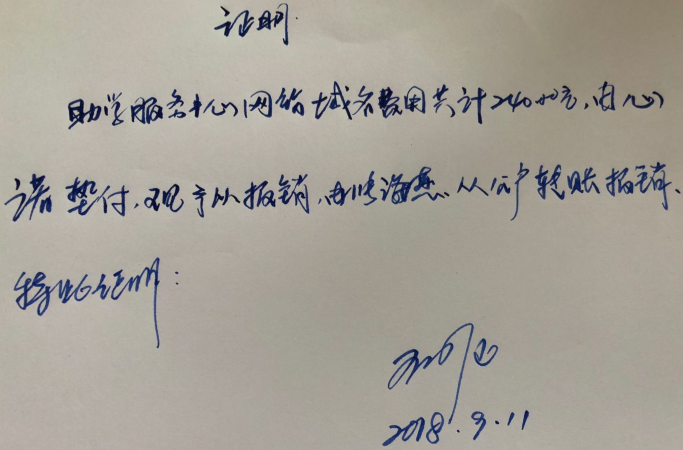 证明
助学服务中心网络域名费用共计240.00元,由心
诺垫付,现予以报销,由
转账报销.
特此证明:
2018.9.11